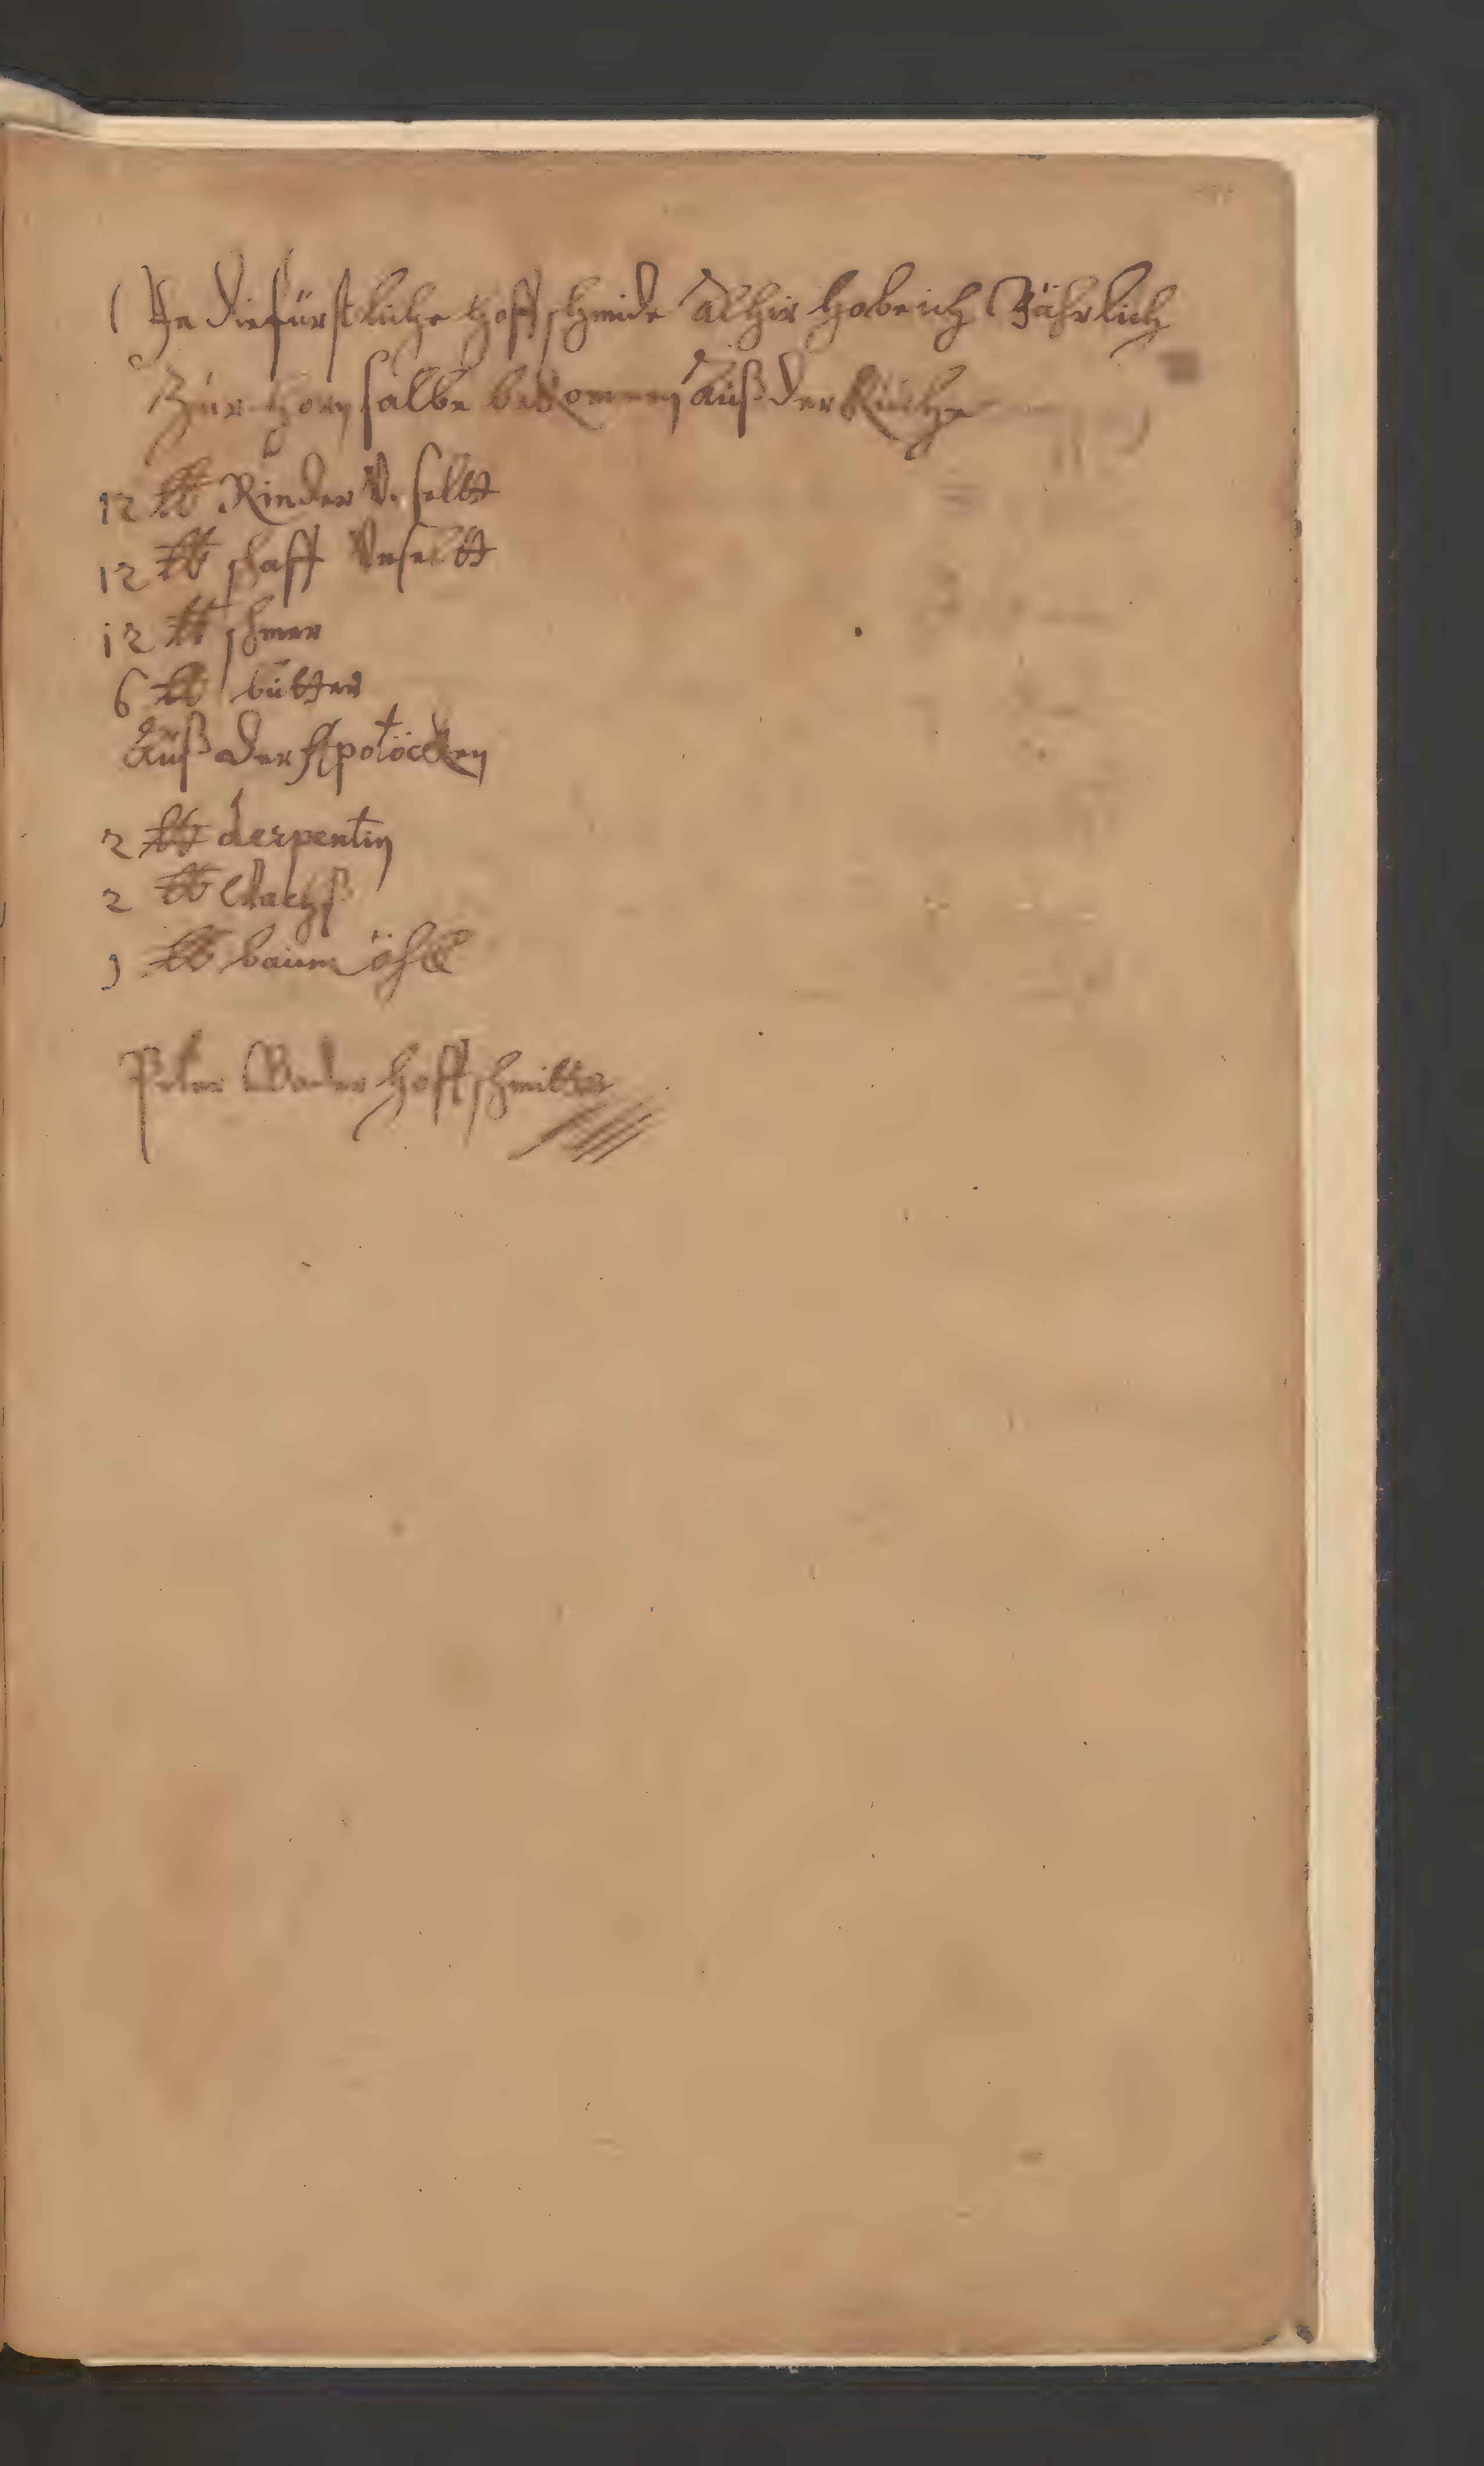 In die fürstliche hoff schmide Alhir habe ich Jährlich
Zur horn salbe bekommen Auß der Küche
12 ℔ Rinder Unseltt
12 ℔ schaff Unseltt
12 ℔ schmer
6 ℔ butter
Auß der Apotöcken
2 ℔ derpentin
2 ℔ Wachß
1 ℔ baum öhll
Peter Bader hoff schmitt